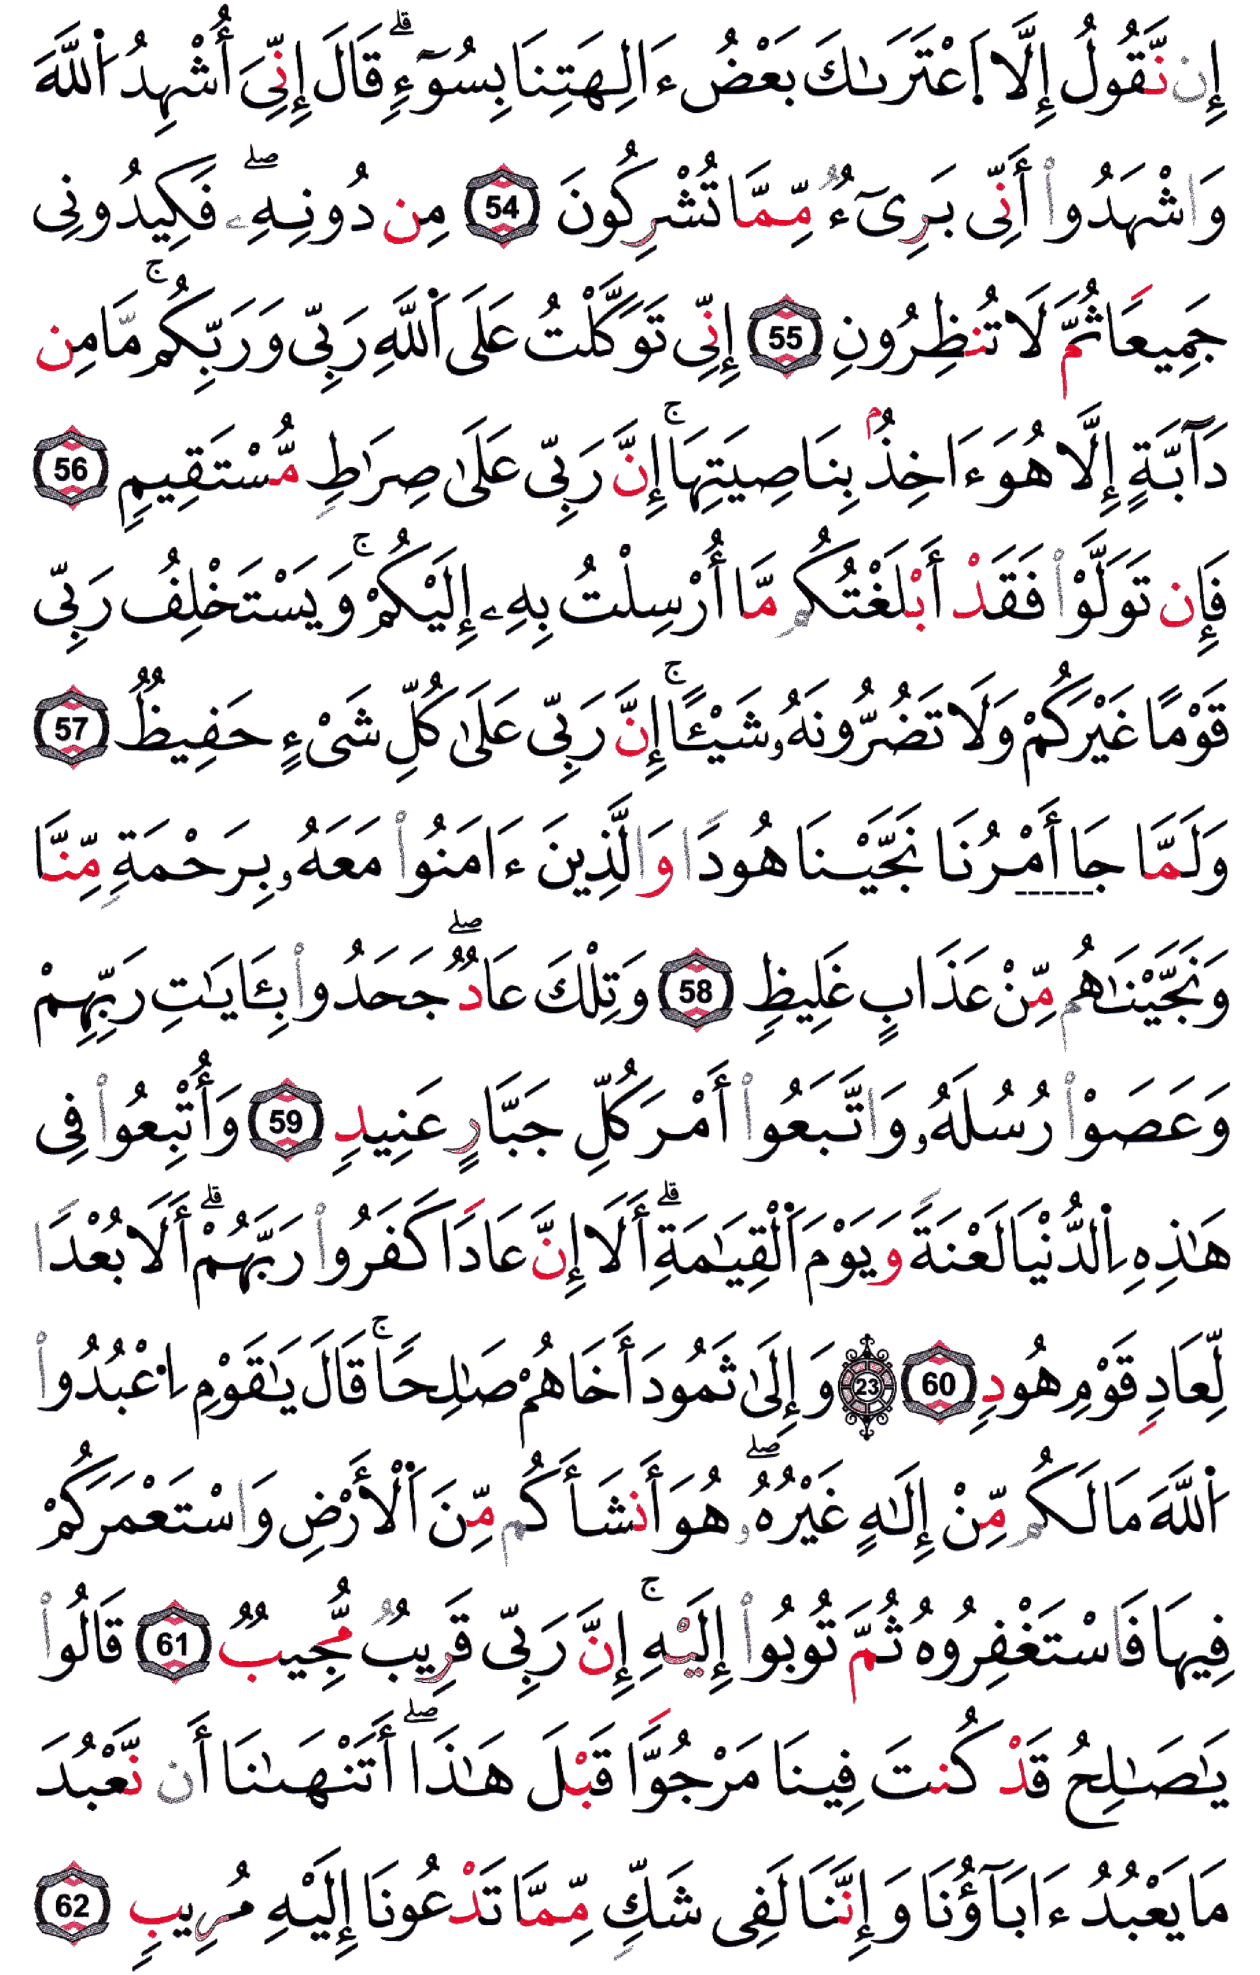 إِن نَّقُولُ إِلَّا اَعْتَرَىٰكَ بَعْضُ ءَالِهَتِنَا بِسُوٓءٍ ۗ قَالَ إِنِّىَ أُشْهِدُ اُللَّهَ
وَاشْهَدُواْ أَنِّى بَرِىٓءٌ مِّمَّا تُشْرِكُونَ 54 مِن دُونِهِۦ ۖ فَكِيدُونِى
جَمِيعًا ثُمَّ لَا تُنظِرُونِ 55 إِنِّى تَوَكَّلْتُ عَلَى اَللَّهِ رَبِّى وَرَبِّكُم ۚ مَّا مِن
دَآبَّةٍ إِلَّا هُوَ ءَاخِذُۢ بِنَاصِيَتِهَا ۚ إِنَّ رَبِّى عَلَىٰ صِرَٰطٍ مُّسْتَقِيمٍ 56
فَإِن تَوَلَّوْاْ فَقَدْ أَبْلَغْتُكُم مَّا أُرْسِلْتُ بِهِۦ إِلَيْكُمْ ۚ وَيَسْتَخْلِفُ رَبِّى
قَوْمًا غَيْرَكُمْ وَلَا تَضُرُّونَهُۥ شَيْـًٔا ۚ إِنَّ رَبِّى عَلَىٰ كُلِّ شَىْءٍ حَفِيظٌ 57
وَلَمَّا جَا أَمْرُنَا نَجَّيْنَا هُودًا وَالَّذِينَ ءَامَنُواْ مَعَهُۥ بِرَحْمَةٍ مِّنَّا
وَنَجَّيْنَٰهُم مِّنْ عَذَابٍ غَلِيظٍ 58 وَتِلْكَ عَادٌ ۖ جَحَدُواْ بِـَٔايَٰتِ رَبِّهِمْ
وَعَصَوْاْ رُسُلَهُۥ وَاتَّبَعُواْ أَمْرَ كُلِّ جَبَّارٍ عَنِيدٍ 59 وَأُتْبِعُواْ فِى
هَٰذِهِ اِلدُّنْيَا لَعْنَةً وَيَوْمَ اَلْقِيَٰمَةِ ۗ أَلَا إِنَّ عَادًا كَفَرُواْ رَبَّهُمْ ۗ أَلَا بُعْدًا
لِّعَادٍ قَوْمِ هُودٍ 60 23 وَإِلَىٰ ثَمُودَ أَخَاهُمْ صَٰلِحًا ۚ قَالَ يَٰقَوْمِ اِعْبُدُواْ
اُللَّهَ مَا لَكُم مِّنْ إِلَٰهٍ غَيْرُهُۥ ۖ هُوَ أَنشَأَكُم مِّنَ اَلْأَرْضِ وَاسْتَعْمَرَكُمْ
فِيهَا فَاسْتَغْفِرُوهُ ثُمَّ تُوبُواْ إِلَيْهِ ۚ إِنَّ رَبِّى قَرِيبٌ مُّجِيبٌ 61 قَالُواْ
يَٰصَٰلِحُ قَدْ كُنتَ فِينَا مَرْجُوًّا قَبْلَ هَٰذَا ۖ أَتَنْهَىٰنَا أَن نَّعْبُدَ
مَا يَعْبُدُ ءَابَآؤُنَا وَإِنَّنَا لَفِى شَكٍّ مِّمَّا تَدْعُونَا إِلَيْهِ مُرِيبٍ 62